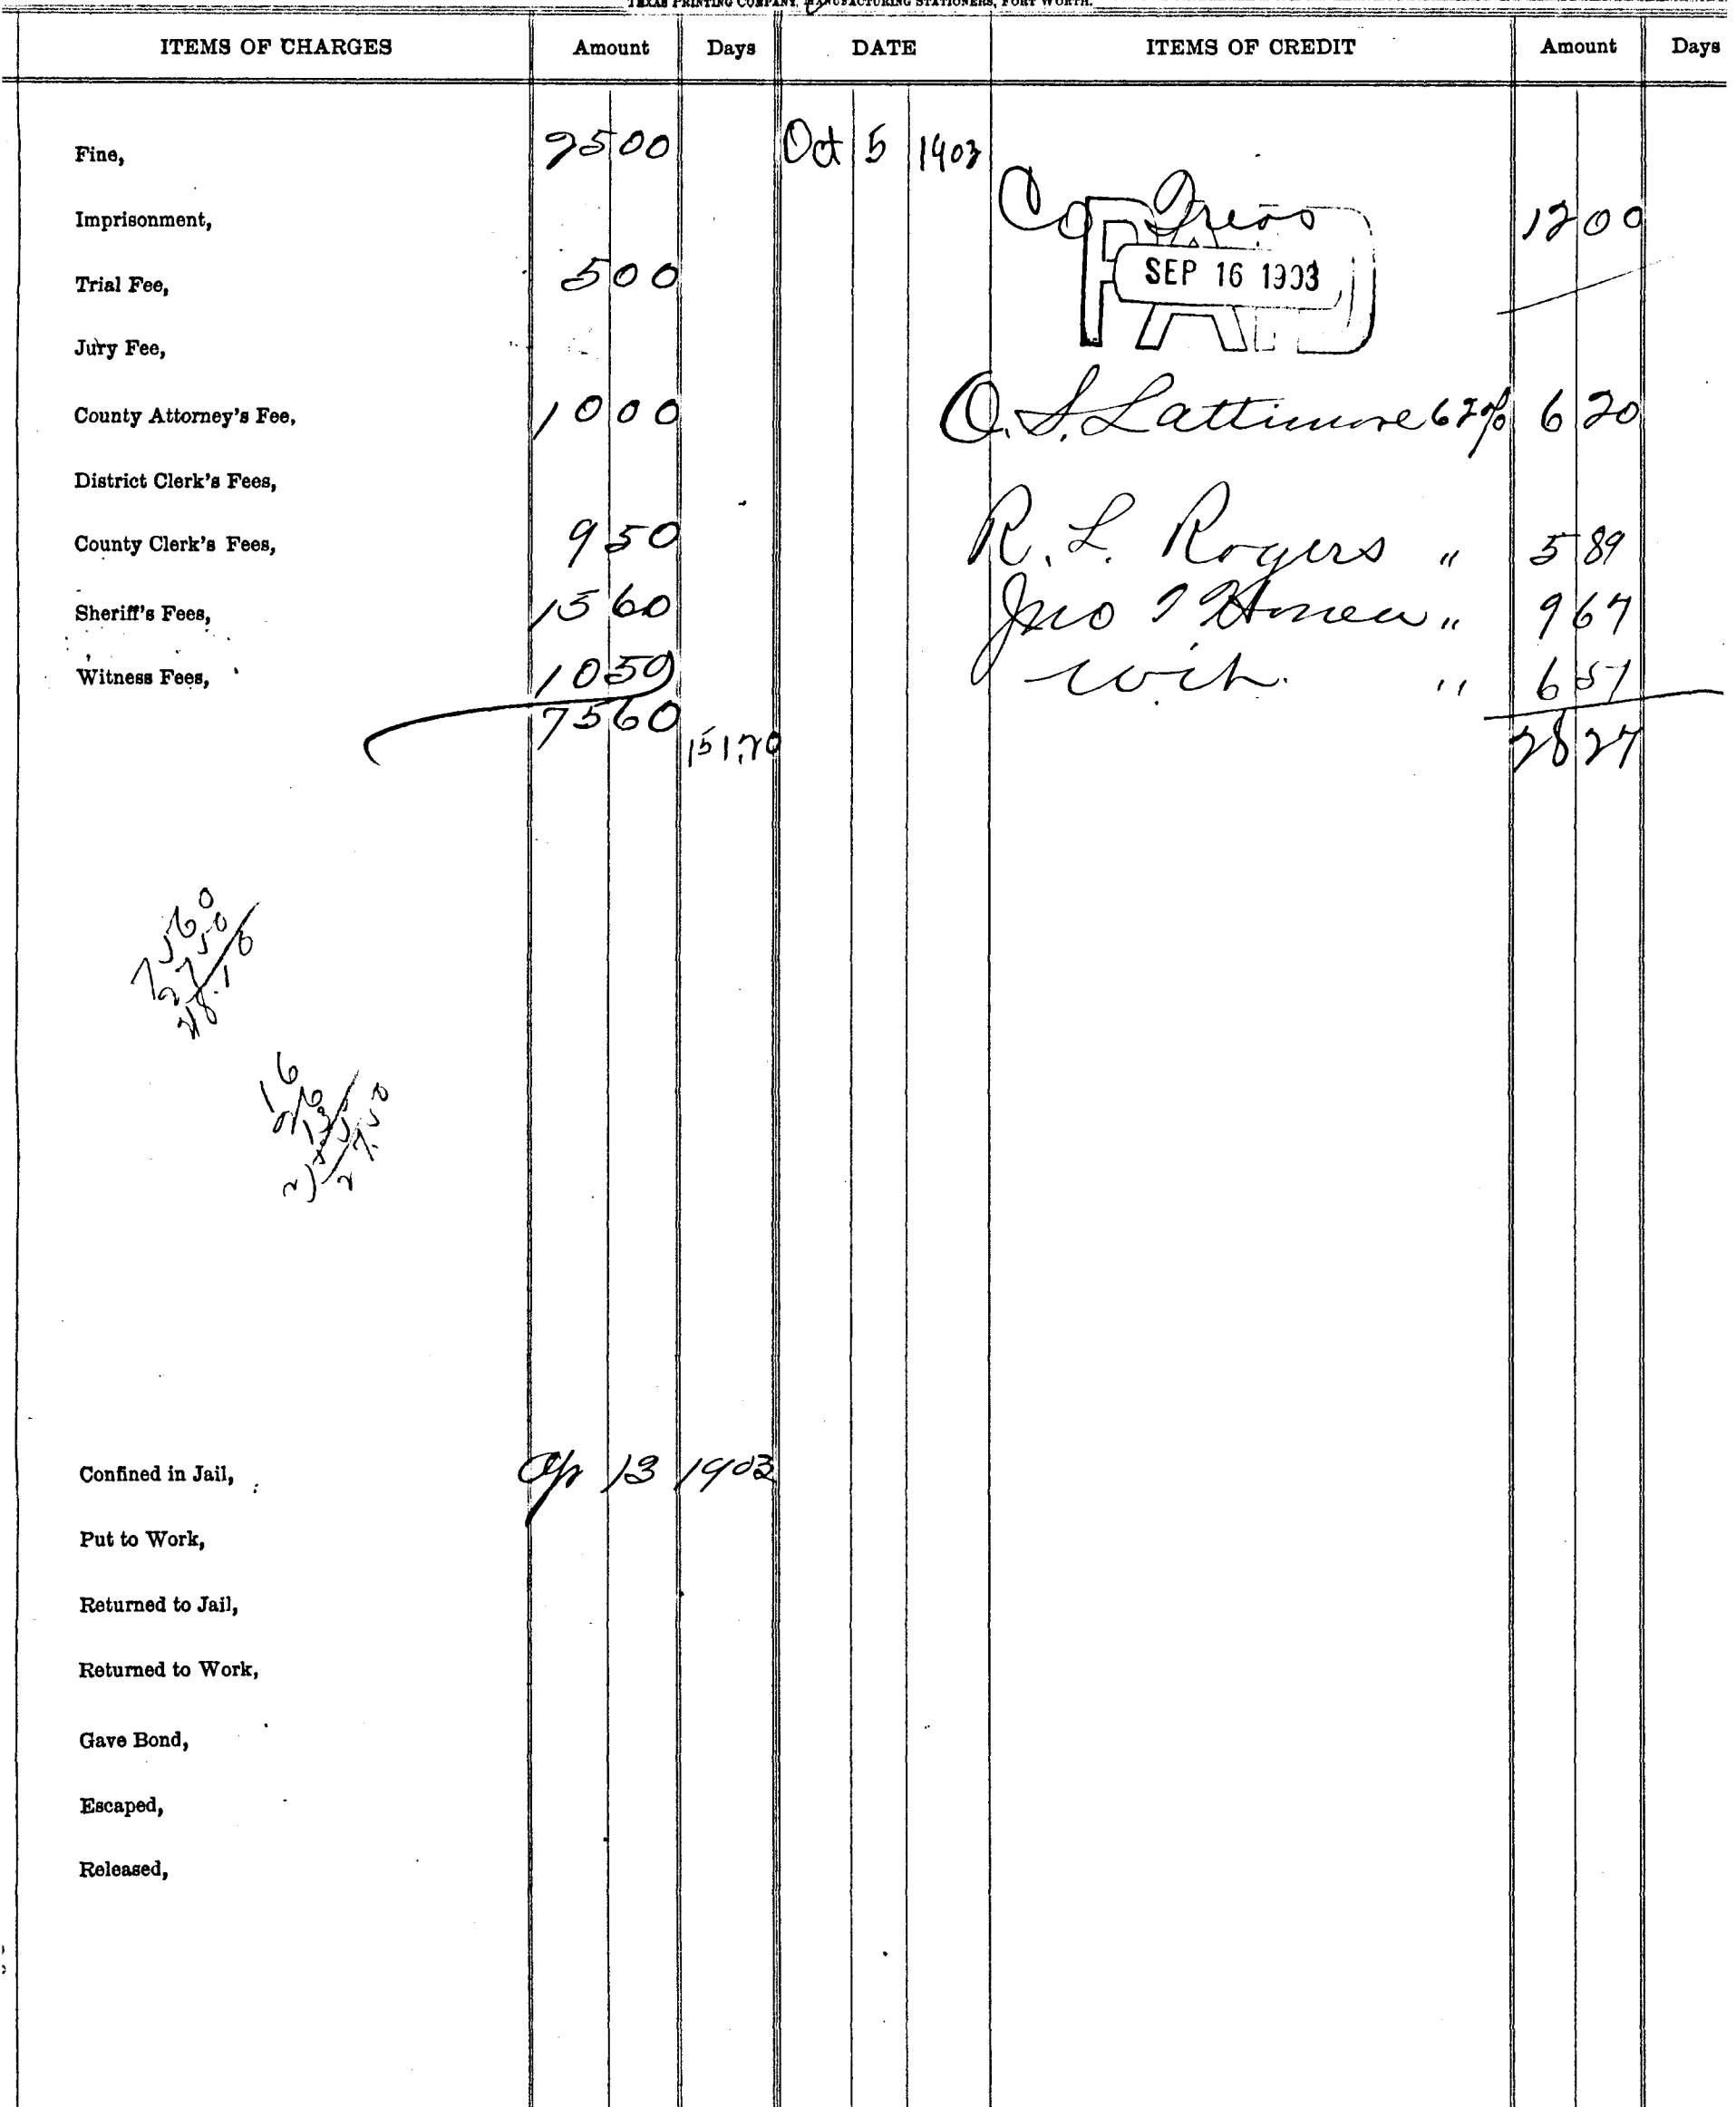 TEXAS PRINTING COMPANY, MANUFACTURING STATIONERS, FORT WORTH.
ITEMS OF CHARGES Amount Days DATE ITEMS OF CREDIT Amount Days
Fine, 25 00 Oct 5 1903
Co Treas
Imprisonment, 12 00
PAID
SEP 16 1903
Trial Fee, 5 00
Jury Fee,
County Attorney's Fee, 10 00 O. S. Lattimore 62% 6 20
District Clerk's Fees,
County Clerk's Fees, 9 50 R. L. Rogers " 5 89
Sheriff's Fees, 15 60 Jno T Honea " 9 67
Witness Fees, 10 50 Wit. " 6 51
75 60
151.20 28 27
7560
2750
48.10
16
26
13
2)55
27.50
Confined in Jail, Ap 13 1903
Put to Work,
Returned to Jail,
Returned to Work,
Gave Bond,
Escaped,
Released,